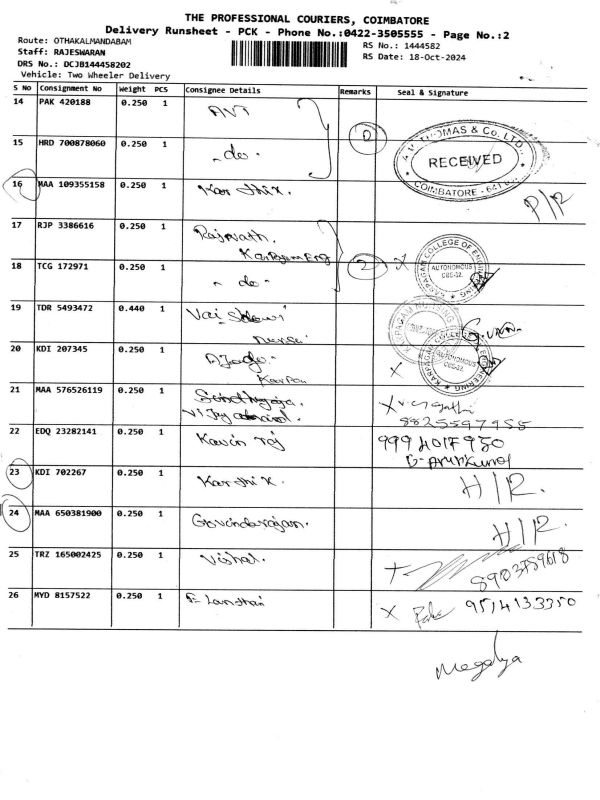 THE PROFESSIONAL COURIERS, COIMBATORE
Delivery Runsheet - PCK - Phone No.:0422-3505555 - Page No.:2
Route: OTHAKALMANDABAM
RS No.: 1444582
Staff: RAJESWARAN
RS Date: 18-Oct-2024
DRS No.: DCJB144458202
Vehicle: Two Wheeler Delivery
S No Consignment No Weight PCS Consignee Details Remarks Seal & Signature
14 PAK 420188 0.250 1
15 HRD 700878060 0.250 1 - do -
THOMAS & Co. LTD.
RECEIVED
COIMBATORE - 641
16 MAA 109355158 0.250 1 Karthik.
17 RJP 3386616 0.250 1
2
18 TCG 172971 0.250 1 - do -
KARPAGAM COLLEGE OF ENGINEERING
AUTONOMOUS
CBE-32.
19 TDR 5493472 0.440 1
KARPAGAM NURSING
20 KDI 207345 0.250 1
KARPAGAM COLLEGE OF ENGINEERING
AUTONOMOUS
CBE-32.
21 MAA 576526119 0.250 1
8825597958
22 EDQ 23282141 0.250 1 Kavin raj
G. Arunkumar
23 KDI 702267 0.250 1 Karthik. H/R.
24 MAA 650381900 0.250 1 Govindarajan. H/R.
25 TRZ 165002425 0.250 1 Vishal.
26 MYD 8157522 0.250 1
Megalya